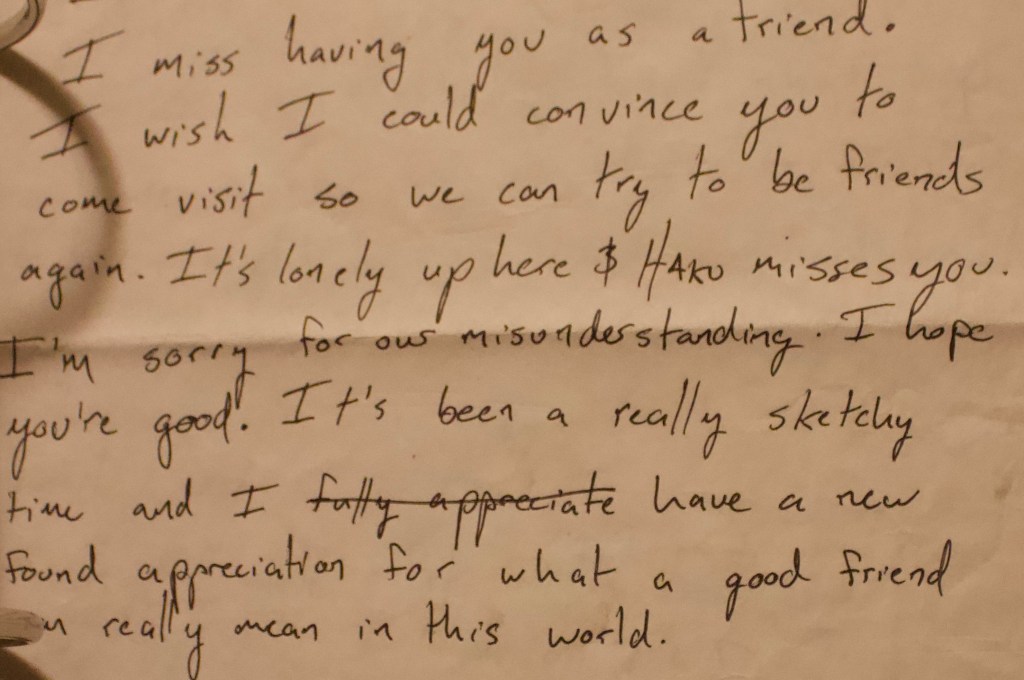 I miss having you as a friend.
I wish I could convince you to
come visit so we can try to be friends
again. It's lonely up here & HAKU misses you.
I'm sorry for our misunderstanding. I hope
you're good. It's been a really sketchy
time and I fully appreciate have a new
found appreciation for what a good friend
really mean in this world.